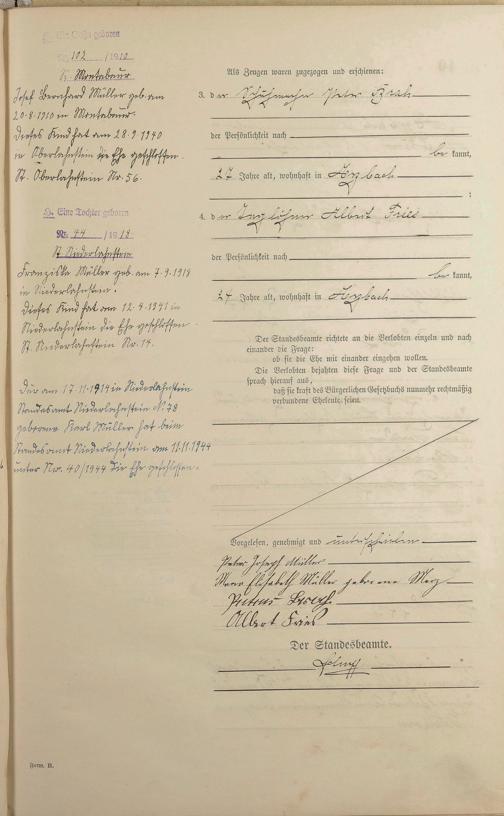 Ein Sohn geboren
Nr. 102 / 1910
St. Montabaur
Josef Bernhard Müller geb. am
20.8.1910 in Montabaur.
Dieses Kind hat am 28.9.1940
in Oberlahnstein die Ehe geschlossen.
St. Oberlahnstein Nr. 56.
2. Eine Tochter geboren
Nr. 44 / 1918
St. Niederlahnstein
Franziska Müller geb. am 7.9.1918
in Niederlahnstein.
Dieses Kind hat am 12.4.1941 in
Niederlahnstein die Ehe geschlossen
St. Niederlahnstein Nr. 14.
Der am 17.11.1914 in Niederlahnstein
Standesamt Niederlahnstein Nr. 78
geborene Karl Müller hat beim
Standesamt Niederlahnstein am 11.11.1944
unter Nr. 40/1944 die Ehe geschlossen.
Als Zeugen waren zugezogen und erschienen:
3. der Peter
der Persönlichkeit nach
bekannt,
27 Jahre alt, wohnhaft in
4. der Taglöhner Albert Fries
der Persönlichkeit nach
bekannt,
24 Jahre alt, wohnhaft in
Der Standesbeamte richtete an die Verlobten einzeln und nach
einander die Frage:
ob sie die Ehe mit einander eingehen wollen.
Die Verlobten bejahten diese Frage und der Standesbeamte
sprach hierauf aus,
daß sie kraft des Bürgerlichen Gesetzbuchs nunmehr rechtmäßig
verbundene Eheleute seien.
Vorgelesen, genehmigt und unterschrieben
Peter Joseph Müller
Elisabeth Müller geborene Merz
Albert Fries
Der Standesbeamte.
Form. B.